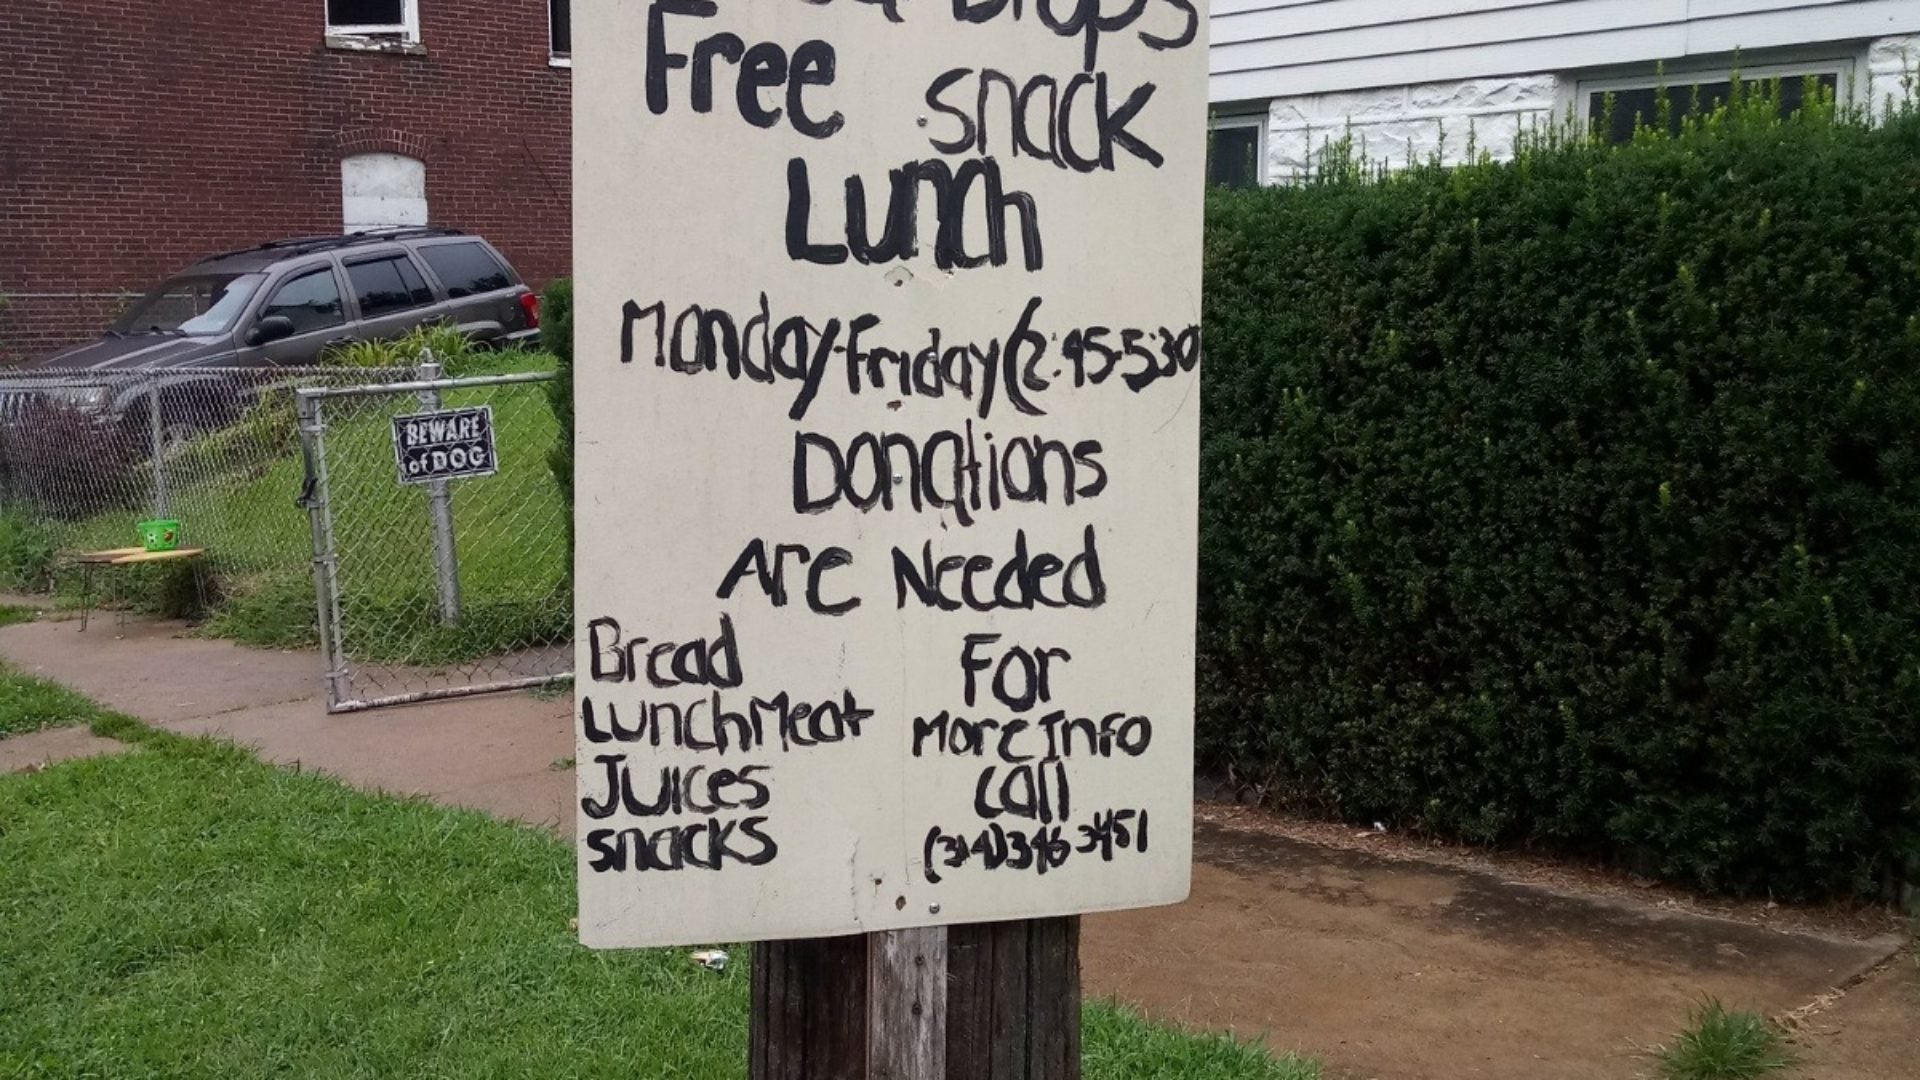 Drops
Free snack
Lunch
Monday-Friday (2:45-5:30
Donations
Are Needed
Bread
Lunch Meat
Juices
snacks
For
More Info
call
(314)346 3451
BEWARE
of DOG